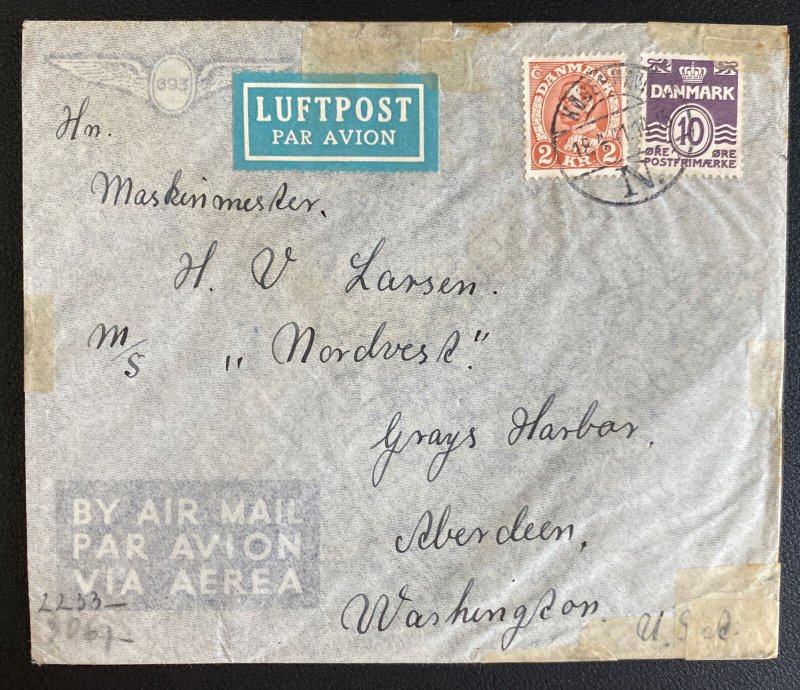 693
LUFTPOST
PAR AVION
DANMARK
2 KR. 2
DANMARK
10
ØRE ØRE
POSTFRIMÆRKE
N
Hn.
Maskinmester.
H. V Larsen.
M/S „Nordvest."
Grays Harbor,
Aberdeen,
Washington.
U.S.A.
BY AIR MAIL
PAR AVION
VIA AEREA
2233-